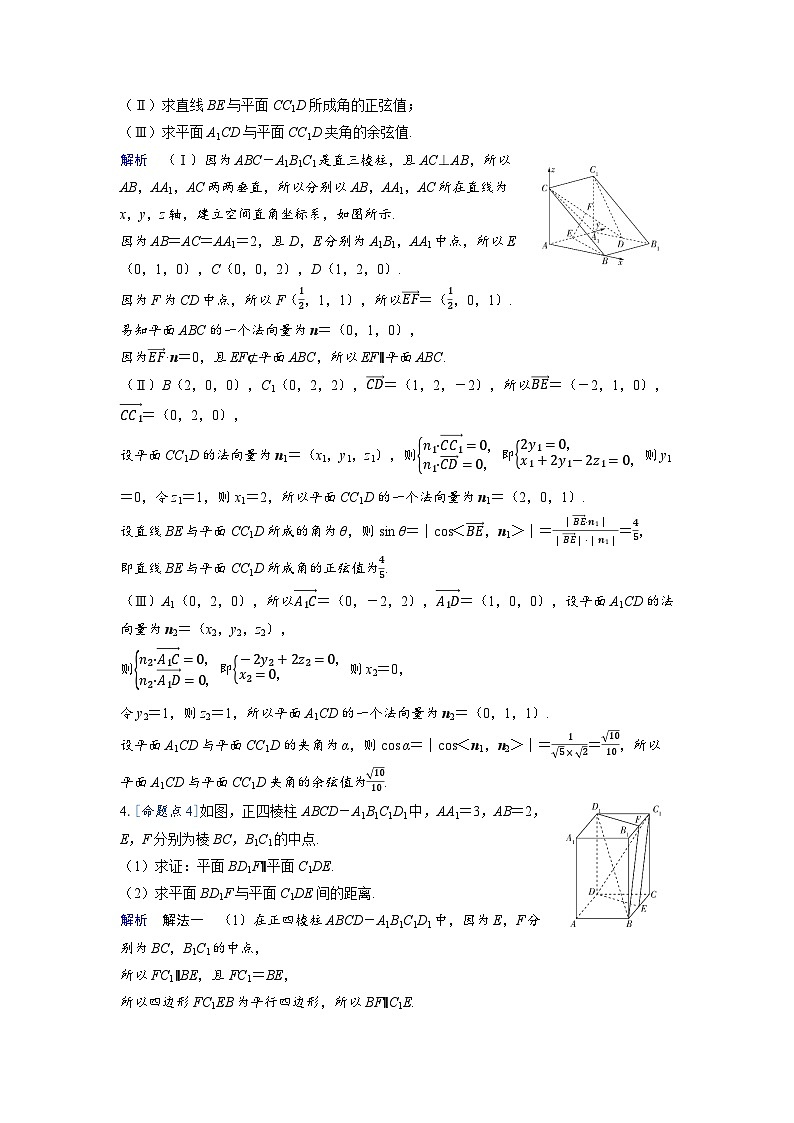 (Ⅱ)求直线BE与平面CC₁D所成角的正弦值;
(Ⅲ)求平面A₁CD与平面CC₁D夹角的余弦值.
解析 (Ⅰ)因为ABC-A₁B₁C₁是直三棱柱,且AC⊥AB,所以
AB,AA₁,AC两两垂直,所以分别以AB,AA₁,AC所在直线为
x,y,z轴,建立空间直角坐标系,如图所示.
因为AB=AC=AA₁=2,且D,E分别为A₁B₁,AA₁中点,所以E
(0,1,0),C(0,0,2),D(1,2,0).
z C₁ C F y E A A₁ D B₁ B x
因为F为CD中点,所以F(1/2,1,1),所以\overrightarrow{EF}=(1/2,0,1).
易知平面ABC的一个法向量为n=(0,1,0),
因为\overrightarrow{EF}·n=0,且EF⊄平面ABC,所以EF∥平面ABC.
(Ⅱ)B(2,0,0),C₁(0,2,2),\overrightarrow{CD}=(1,2,-2),所以\overrightarrow{BE}=(-2,1,0),
\overrightarrow{CC₁}=(0,2,0),
设平面CC₁D的法向量为n₁=(x₁,y₁,z₁),则{n₁·\overrightarrow{CC₁}=0, n₁·\overrightarrow{CD}=0, 即{2y₁=0, x₁+2y₁-2z₁=0, 则y₁
=0,令z₁=1,则x₁=2,所以平面CC₁D的一个法向量为n₁=(2,0,1).
设直线BE与平面CC₁D所成的角为θ,则sin θ=|cos<\overrightarrow{BE},n₁>|=|\overrightarrow{BE}·n₁|/(|\overrightarrow{BE}|·|n₁|)=4/5,
即直线BE与平面CC₁D所成角的正弦值为4/5.
(Ⅲ)A₁(0,2,0),所以\overrightarrow{A₁C}=(0,-2,2),\overrightarrow{A₁D}=(1,0,0),设平面A₁CD的法
向量为n₂=(x₂,y₂,z₂),
则{n₂·\overrightarrow{A₁C}=0, n₂·\overrightarrow{A₁D}=0, 即{-2y₂+2z₂=0, x₂=0, 则x₂=0,
令y₂=1,则z₂=1,所以平面A₁CD的一个法向量为n₂=(0,1,1).
设平面A₁CD与平面CC₁D的夹角为α,则cos α=|cos<n₁,n₂>|=1/(√5×√2)=√10/10,所以
平面A₁CD与平面CC₁D夹角的余弦值为√10/10.
4.[命题点4]如图,正四棱柱ABCD-A₁B₁C₁D₁中,AA₁=3,AB=2,
E,F分别为棱BC,B₁C₁的中点.
(1)求证:平面BD₁F∥平面C₁DE.
(2)求平面BD₁F与平面C₁DE间的距离.
D₁ C₁ F A₁ B₁ D C E A B
解析 解法一 (1)在正四棱柱ABCD-A₁B₁C₁D₁中,因为E,F分
别为BC,B₁C₁的中点,
所以FC₁∥BE,且FC₁=BE,
所以四边形FC₁EB为平行四边形,所以BF∥C₁E.